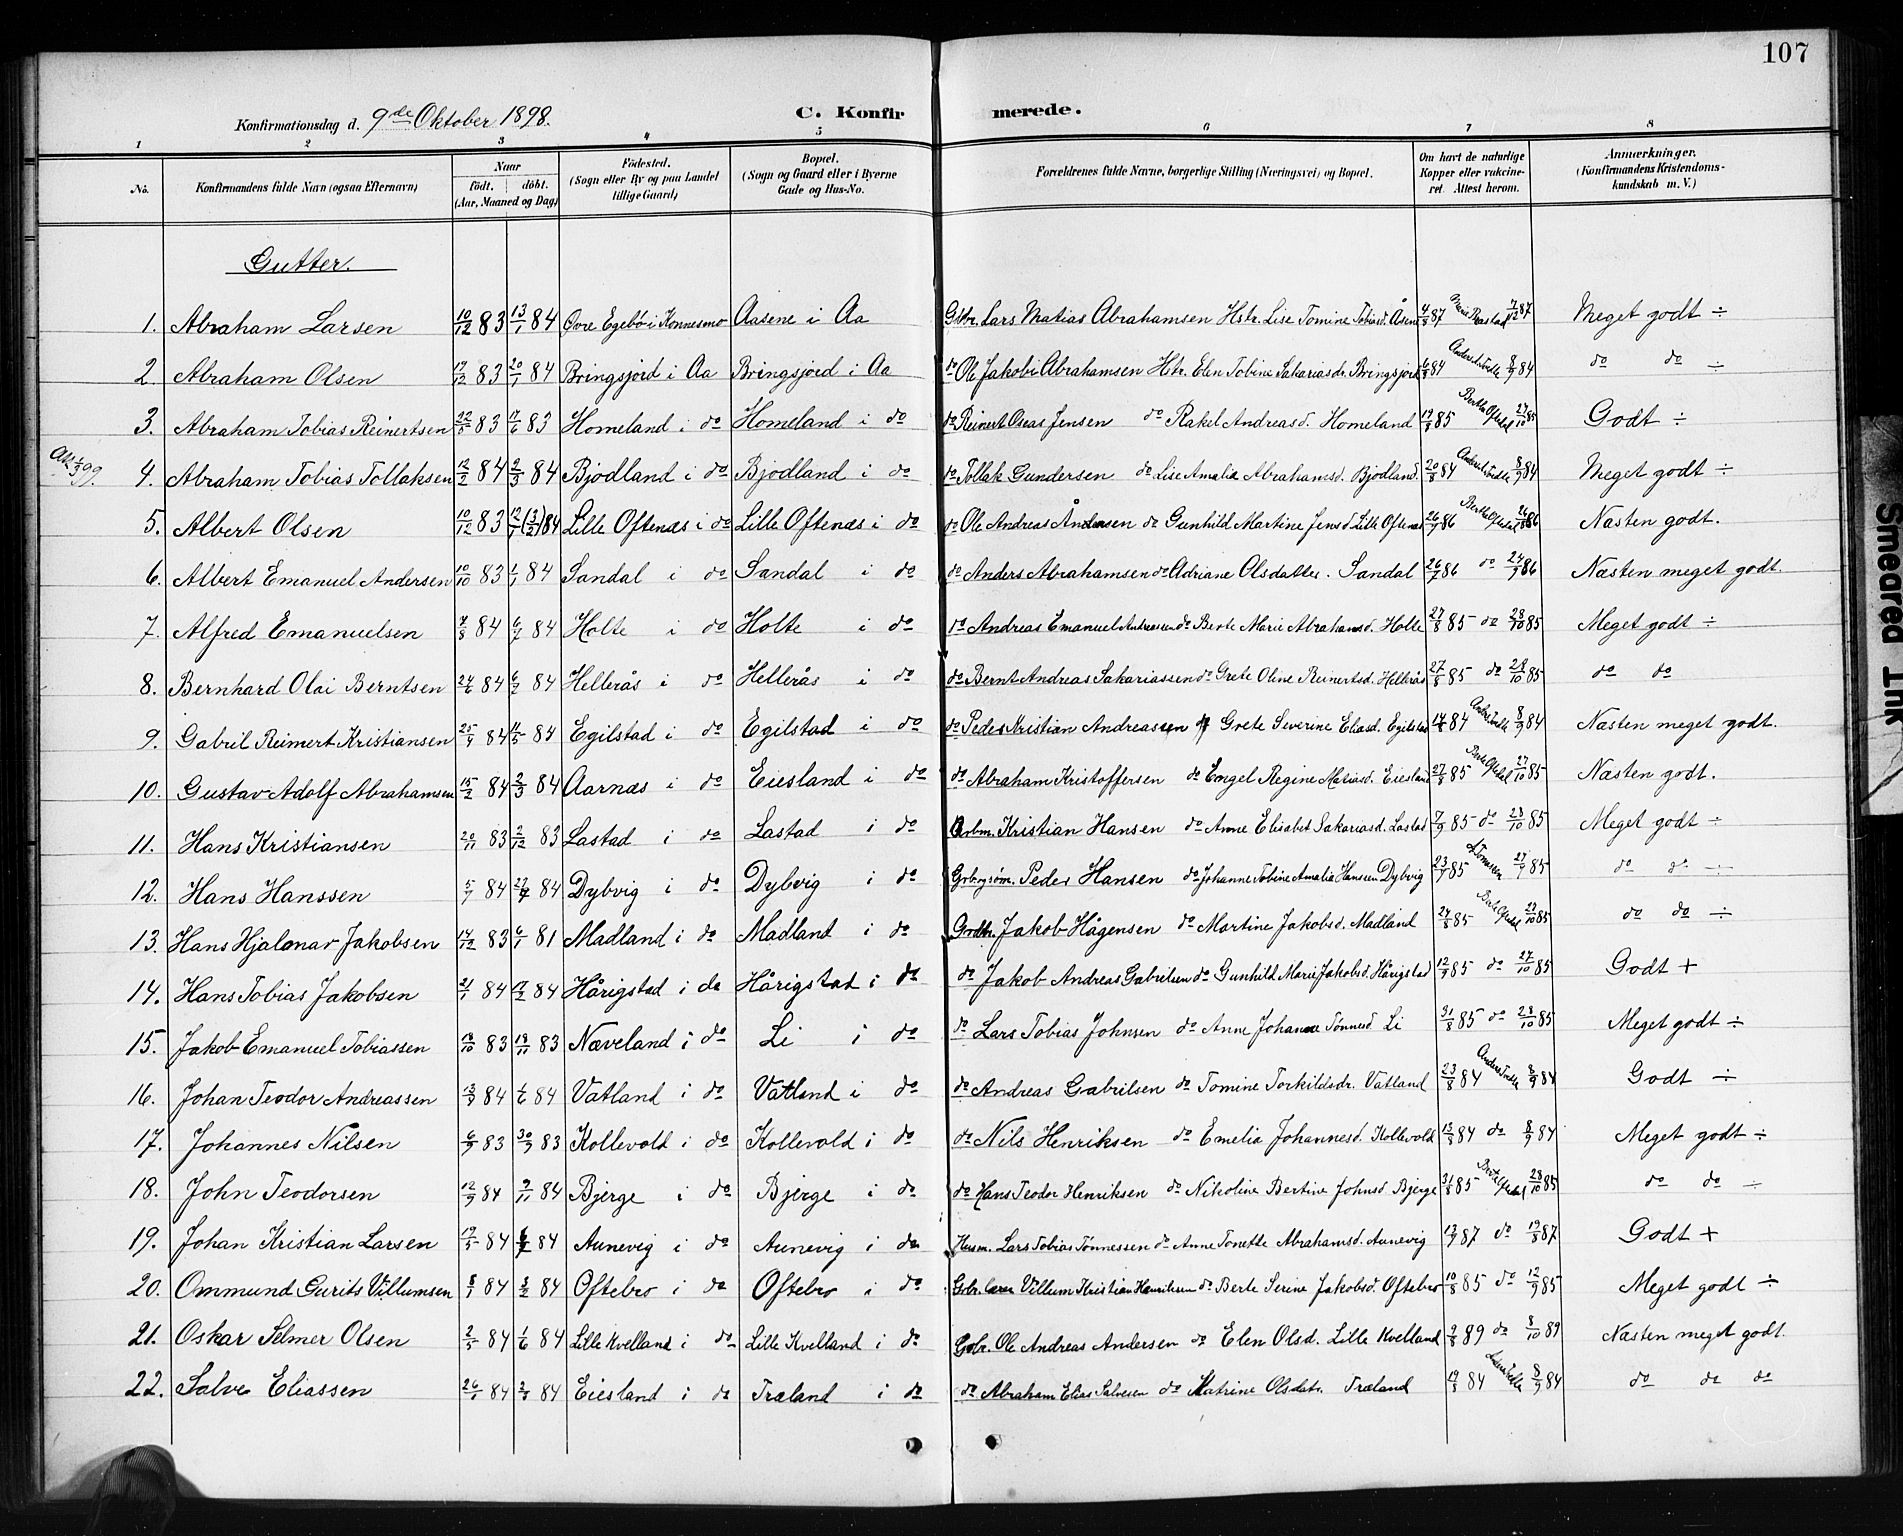 107
Konfirmationsdag d. 9de Oktober 1898.
C. Konfirmerede.
1 2 3 4 5 6 7 8
No. Konfirmandens fulde Navn (ogsaa Efternavn) Naar födt. döbt. (Aar, Maaned og Dag) Födested. (Sogn eller By og paa Landet tillige Gaard) Bopæl. (Sogn og Gaard eller i Byerne Gade og Hus-No. Forældrenes fulde Navne, borgerlige Stilling (Næringsvei) og Bopæl. Om havt de naturlige Kopper eller vaccineret. Attest herom. Anmærkninger. (Konfirmandens Kristendomskundskab m. V.)
Gutter.
1. Abraham Larsen 10/12 83 13/1 84 Øvre Egebö i Konnesmo Aasene i Aa Lars Matias Abrahamsen Hstr. Lise Tomine Tobiasd. Åsene 4/8 87 7/12 87 Meget godt ÷
2. Abraham Olsen 17/12 83 20/1 84 Bringsjord i Aa Bringsjord i Aa do Ole Jakob Abrahamsen Hstr. Elen Tobine Sakariasdr. Bringsjord 6/8 84 8/9 84 do do ÷
3. Abraham Tobias Reinertsen 22/5 83 17/6 83 Homeland i do Homeland i do do Reinert Oseas Jensen do Rakel Andreasd. Homeland 19/8 85 27/10 85 Godt ÷
4. Abraham Tobias Tollaksen 12/2 84 2/3 84 Bjodland i do Bjodland i do do Tollak Gundersen do Lise Amalia Abrahamsd. Bjodland. 20/8 84 8/9 84 Meget godt ÷
5. Albert Olsen 10/12 83 84 Lille Oftenæs i do Lille Oftenæs i do do Ole Andreas do Gunhild Martine Jensd. Lille Oftenæs 26/7 86 86 Næsten godt.
6. Albert Emanuel Andersen 10/10 83 1/1 84 Sandal i do Sandal i do do Anders Abrahamsen do Adriane Olsdatter. Sandal 26/7 86 do 24/9 86 Næsten meget godt.
7. Alfred Emanuelsen 84 84 Holte i do Holte i do do Andreas Emanuel Andreassen do Berte Marie Abrahamsd. Holte 27/8 85 do 28/10 85 Meget godt ÷
8. Bernhard Olai Berntsen 24/6 84 84 Hellerås i do Hellerås i do do Bernt Andreas Sakariassen do Grete Oline Reinertsd. Hellerås 27/8 85 do 28/10 85 do do
9. Gabril Reinert Kristiansen 84 84 Egilstad i do Egilstad i do do Peder Kristian Andreassen Grete Severine Eliasd. Egilstad 84 8/9 84 Næsten meget godt.
10. Gustav Adolf Abrahamsen 15/2 84 2/3 84 Aarnæs i do Eiesland i do do Abraham Kristoffersen do Engel Regine Matiasd. Eiesland 27/8 85 27/10 85 Næsten godt.
11. Hans Kristiansen 20/11 83 2/12 83 Lastad i do Lastad i do Arbm. Kristian Hansen do Anne Elisabet Sakariasd. Lastad 7/9 85 do 28/10 85 Meget godt ÷
12. Hans Hanssen 84 84 Dybvig i do Dybvig i do Peder Hansen do Johanne Tobine Amalia Hansen Dybvig 23/7 85 27/9 85 do do ÷
13. Hans Hjalmar Jakobsen 17/12 83 6/1 81 Madland i do Madland i do Jakob Hågensen do Martine Jakobsd. Madland 24/8 85 27/10 85 do do ÷
14. Hans Tobias Jakobsen 21/1 84 17/2 84 Hårigstad i do Hårigstad i do do Jakob Andreas Gabrielsen do Gunhild Marie Jakobsd. Hårigstad 12/9 85 do 27/10 85 Godt +
15. Jakob Emanuel Tobiassen 83 83 Næveland i do Li i do do Lars Tobias Johnsen do Anne Johanne Tönnesd Li 31/8 85 do 28/10 85 Meget godt ÷
16. Johan Teodor Andreassen 84 84 Vatland i do Vatland i do do Andreas Gabrilsen do Tomine Torkildsdr. Vatland 23/8 84 8/9 84 Godt ÷
17. Johannes Nilsen 6/9 83 30/9 83 Kollevold i do Kollevold i do do Nils Henriksen do Emelia Johannesd. Kollevold 84 do 8/9 84 Meget godt ÷
18. John Teodorsen 12/9 84 9/11 84 Bjerge i do Bjerge i do do Hans Teodor Henriksen do Nikoline Bertine Johnsd Bjerge 31/8 85 28/10 85 do do ÷
19. Johan Kristian Larsen 19/5 84 84 Aunevig i do Aunevig i do Husm. Lars Tobias Tönnessen do Anne Tonette Abrahamsd. Aunevig 87 do 87 Godt +
20. Ommund Gurits Villumsen 84 84 Oftebro i do Oftebro i do Villum Kristian Henriksen do Berte Serine Jakobsd. Oftebro 10/8 85 do 12/9 85 Meget godt ÷
21. Oskar Selmer Olsen 2/5 84 1/6 84 Lille Kvelland i do Lille Kvelland i do Ole Andreas Andersen do Elen Olsd. Lille Kvelland 89 do 8/10 89 Næsten meget godt.
22. Salve Eliassen 26/1 84 84 Eiesland i do Træland i do do Abraham Elias Salvesen do Katrine Olsdatr. Træland 19/8 84 8/9 84 do do do
Smeared Ink